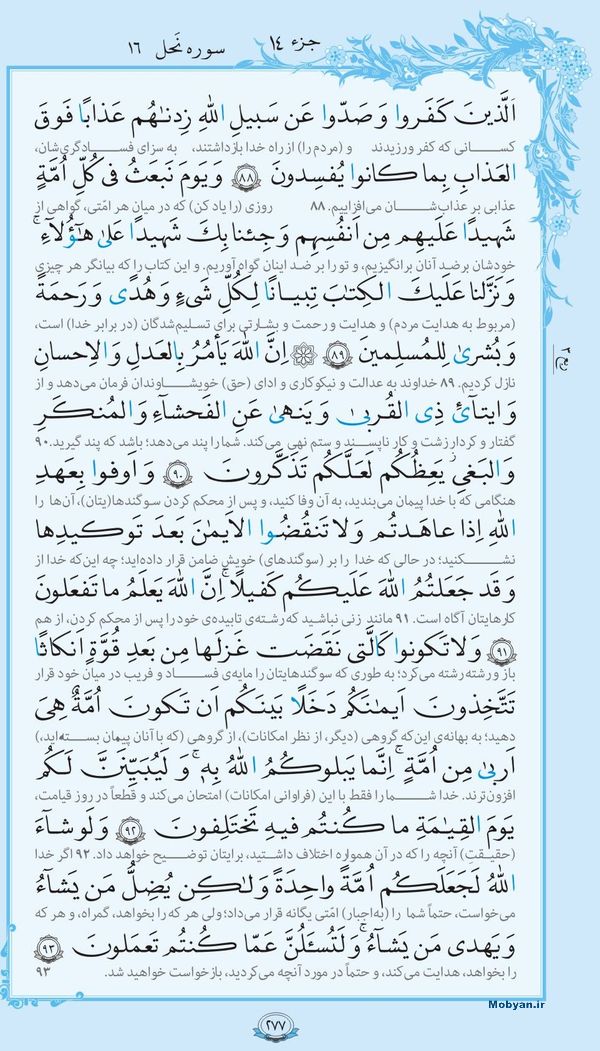 جزء ۱۴
سوره نَحل ۱۶
اَلَّذينَ كَفَروا وَ صَدّوا عَن سَبيلِ اللهِ زِدنٰهُم عَذابًا فَوقَ
کسانی که کفر ورزیدند و (مردم را) از راه خدا بازداشتند، به سزای فسادگری‌شان،
العَذابِ بِما كانوا يُفسِدونَ ﴿۸۸﴾ وَ يَومَ نَبعَثُ فى كُلِّ اُمَّةٍ
عذابی بر عذاب‌شان می‌افزاییم. ۸۸ روزی (را یاد کن) که در میان هر امّتی، گواهی از
شَهيدًا عَلَيهِم مِن اَنفُسِهِم وَ جِئنا بِكَ شَهيدًا عَلىٰ هٰٓؤُلآءِ ۚ
خودشان بر ضد آنان برانگیزیم، و تو را بر ضد اینان گواه آوریم. و این کتاب را که بیانگر هر چیزی
وَ نَزَّلنا عَلَيكَ الكِتٰبَ تِبيانًا لِكُلِّ شَىءٍ وَ هُدًى وَ رَحمَةً
(مربوط به هدایت مردم) و هدایت و رحمت و بشارتی برای تسلیم‌شدگان (در برابر خدا) است،
وَ بُشرىٰ لِلمُسلِمينَ ﴿۸۹﴾ اِنَّ اللهَ يَأمُرُ بِالعَدلِ وَ الاِحسانِ
نازل کردیم. ۸۹ خداوند به عدالت و نیکوکاری و ادای (حق) خویشاوندان فرمان می‌دهد و از
وَ ايتآئِ ذِى القُربىٰ وَ يَنهىٰ عَنِ الفَحشآءِ وَ المُنكَرِ
گفتار و کردار زشت و کار ناپسند و ستم نهی می‌کند. شما را پند می‌دهد؛ باشد که پند گیرید. ۹۰
وَ البَغىِ ۚ يَعِظُكُم لَعَلَّكُم تَذَكَّرونَ ﴿۹۰﴾ وَ اَوفوا بِعَهدِ
هنگامی که با خدا پیمان می‌بندید، به آن وفا کنید، و پس از محکم کردن سوگندها(یتان)، آن‌ها را
اللهِ اِذا عاهَدتُم وَ لا تَنقُضُوا الاَيمٰنَ بَعدَ تَوكيدِها
نشکنید؛ در حالی که خدا را بر (سوگندهای) خویش ضامن قرار داده‌اید؛ چه این‌که خدا از
وَ قَد جَعَلتُمُ اللهَ عَلَيكُم كَفيلًا ۚ اِنَّ اللهَ يَعلَمُ ما تَفعَلونَ
کارهایتان آگاه است. ۹۱ مانند زنی نباشید که رشته‌ی تابیده‌ی خود را پس از محکم کردن، از هم
﴿۹۱﴾ وَ لا تَكونوا كَالَّتى نَقَضَت غَزلَها مِن بَعدِ قُوَّةٍ اَنكاثًا
باز و رشته رشته می‌کرد؛ به طوری که سوگندهایتان را مایه‌ی فساد و فریب در میان خود قرار
تَتَّخِذونَ اَيمٰنَكُم دَخَلًا بَينَكُم اَن تَكونَ اُمَّةٌ هِىَ
دهید؛ به بهانه‌ی این‌که گروهی (دیگر، از نظر امکانات)، از گروهی (که با آنان پیمان بسته‌اید)،
اَربىٰ مِن اُمَّةٍ ۚ اِنَّما يَبلوكُمُ اللهُ بِهٖ ۚ وَ لَيُبَيِّنَنَّ لَكُم
افزون‌ترند. خدا شما را فقط با این (فراوانی امکانات) امتحان می‌کند و قطعاً در روز قیامت،
يَومَ القِيٰمَةِ ما كُنتُم فيهِ تَختَلِفونَ ﴿۹۲﴾ وَ لَو شآءَ
(حقیقتِ) آنچه را که در آن همواره اختلاف داشتید، برایتان توضیح خواهد داد. ۹۲ اگر خدا
اللهُ لَجَعَلَكُم اُمَّةً واحِدَةً وَ لٰكِن يُضِلُّ مَن يَشآءُ
می‌خواست، حتماً شما را (به‌اجبار) امّتی یگانه قرار می‌داد؛ ولی هر که را بخواهد، گمراه، و هر که
وَ يَهدى مَن يَشآءُ ۚ وَ لَتُسئَلُنَّ عَمّا كُنتُم تَعمَلونَ ﴿۹۳﴾
را بخواهد، هدایت می‌کند، و حتماً در مورد آنچه می‌کردید، بازخواست خواهید شد. ۹۳
Mobyan.ir
۲۷۷